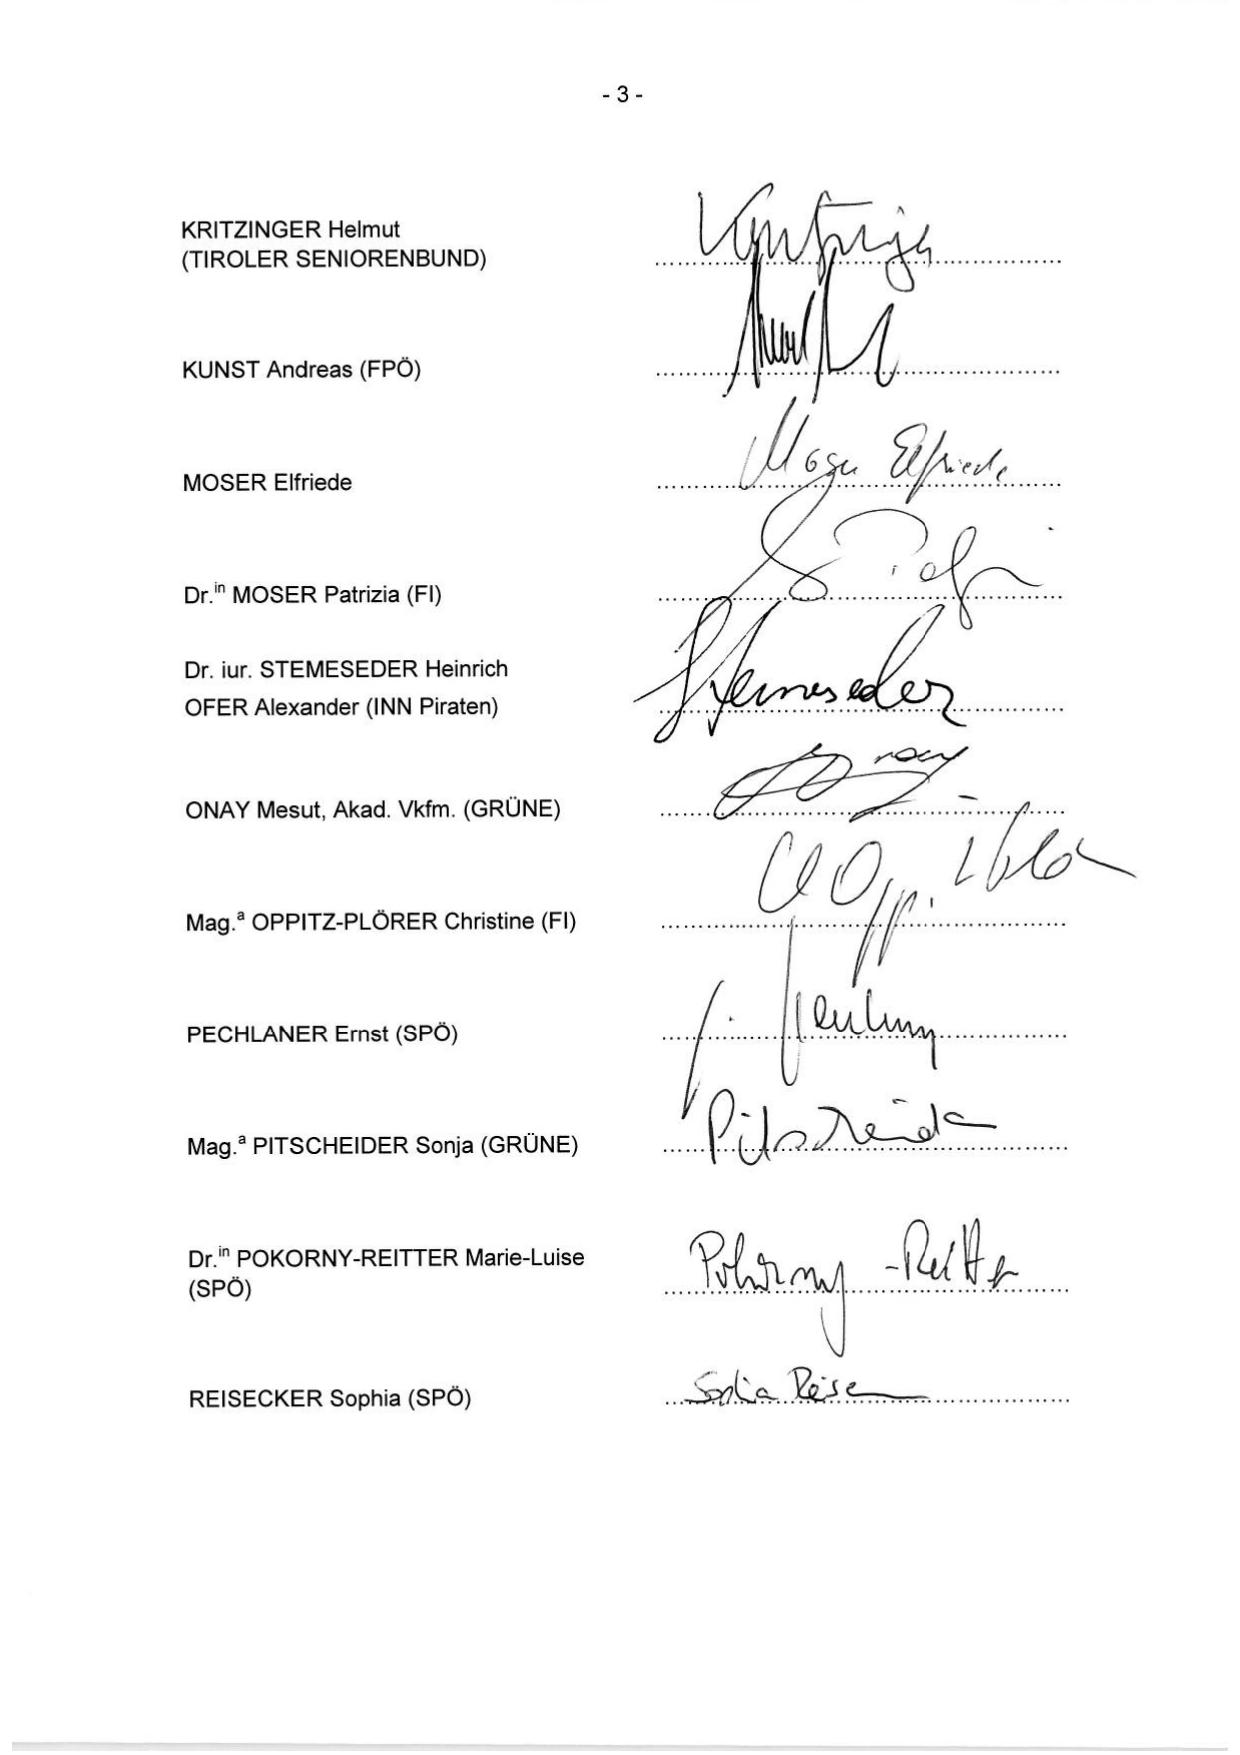 - 3 -
KRITZINGER Helmut
(TIROLER SENIORENBUND)
Kritzinger
KUNST Andreas (FPÖ)
MOSER Elfriede
Moser Elfriede
Dr.in MOSER Patrizia (FI)
Dr. iur. STEMESEDER Heinrich
OFER Alexander (INN Piraten)
Stemeseder
ONAY Mesut, Akad. Vkfm. (GRÜNE)
Mag.a OPPITZ-PLÖRER Christine (FI)
PECHLANER Ernst (SPÖ)
Mag.a PITSCHEIDER Sonja (GRÜNE)
Pitscheider
Dr.in POKORNY-REITTER Marie-Luise
(SPÖ)
Pokorny-Reitter
REISECKER Sophia (SPÖ)
Sophia